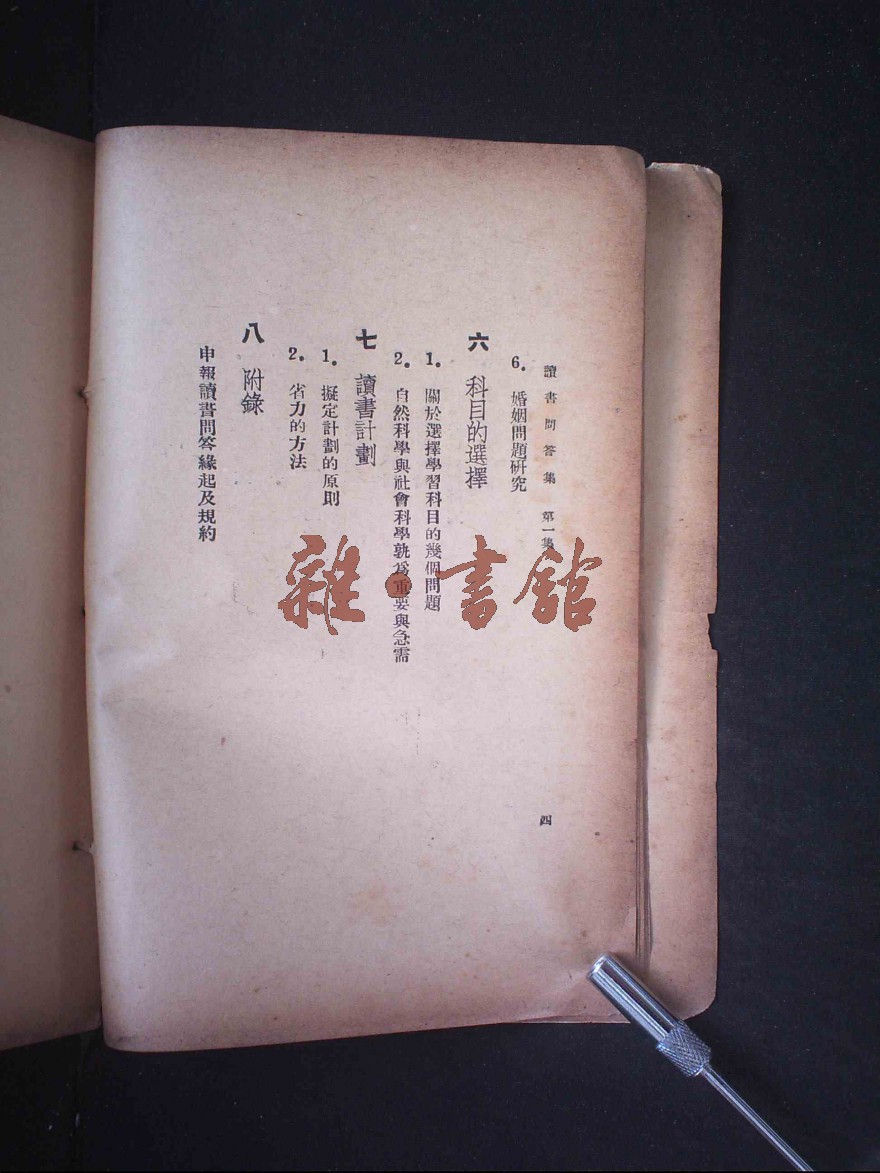 讀書問答集 第一集
6. 婚姻問題研究
六 科目的選擇
1. 關於選擇學習科目的幾個問題
2. 自然科學與社會科學孰爲重要與急需
七 讀書計劃
1. 擬定計劃的原則
2. 省力的方法
八 附錄
申報讀書問答緣起及規約
四
雜·書館